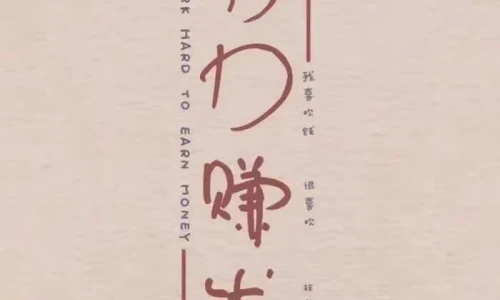 RK HARD TO EARN MONEY
力赚
我喜欢钱 很喜欢